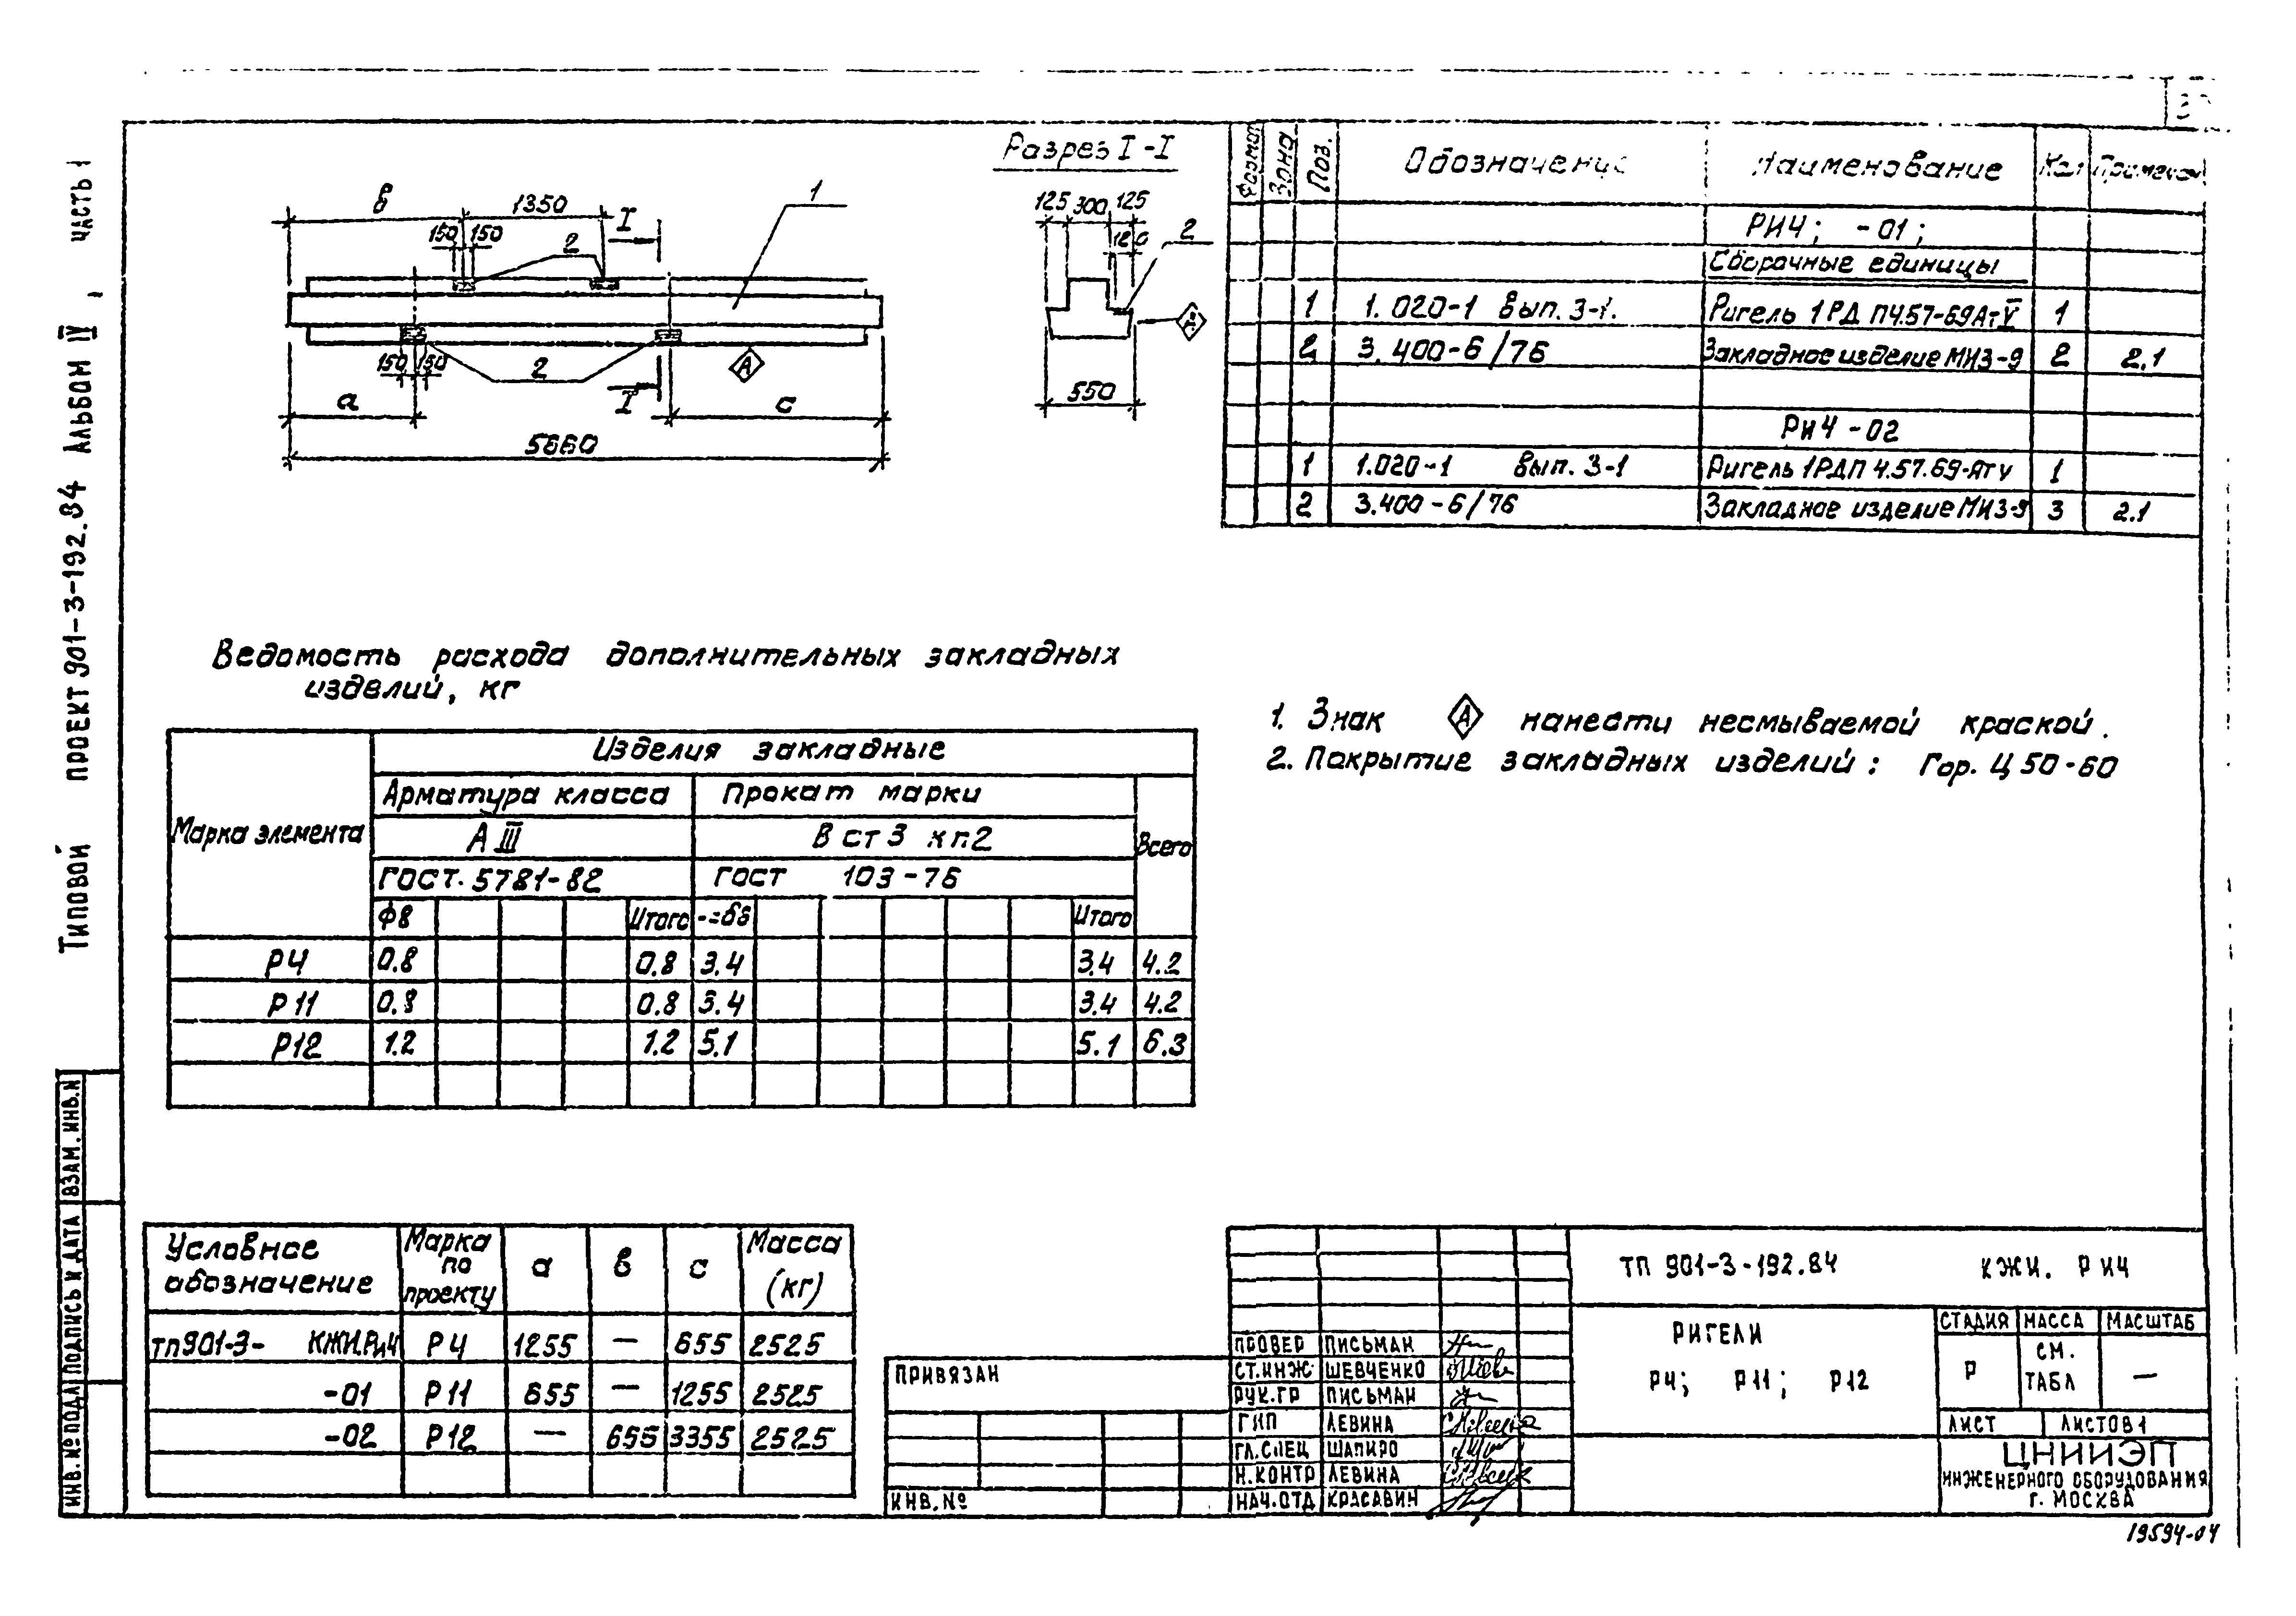 Типовой проект 901-3-192.84 Альбом IV, часть 1
Разрез I-I
в 1350 I 1
150 150 2
125 300 125
120 2
150 150 2 А I
а с
5660
550
Формат Зона Поз. Обозначение Наименование Кол Примечан
РИ4; -01;
Сборочные единицы
1 1.020-1 вып. 3-1. Ригель 1РД П4.57-69АтV 1
2 3.400-6/76 Закладное изделие МИ3-9 2 2.1
РИ4-02
1 1.020-1 вып. 3-1 Ригель 1РДП 4.57.69-Атv 1
2 3.400-6/76 Закладное изделие МИ3-9 3 2.1
Ведомость расхода дополнительных закладных
изделий, кг
Марка элемента Изделия закладные
Арматура класса Прокат марки Всего
А III В ст 3 кп2
ГОСТ. 5781-82 ГОСТ 103-76
Ф8 Итого -=δ8 Итого
Р4 0.8 0.8 3.4 3.4 4.2
Р11 0.8 0.8 3.4 3.4 4.2
Р12 1.2 1.2 5.1 5.1 6.3
1. Знак А нанести несмываемой краской.
2. Покрытие закладных изделий: Гор. Ц 50-60
Условное обозначение Марка по проекту а в с Масса (кг)
тп901-3- КЖИ.Ри4 Р4 1255 — 655 2525
-01 Р11 655 — 1255 2525
-02 Р12 — 655 3355 2525
ПРИВЯЗАН
ИНВ.№
ПРОВЕР ПИСЬМАН
СТ.ИНЖ ШЕВЧЕНКО
РУК.ГР ПИСЬМАН
ГИП ЛЕВИНА
ГЛ.СПЕЦ ШАПИРО
Н.КОНТР ЛЕВИНА
НАЧ.ОТД КРАСАВИН
ТП 901-3-192.84 КЖИ. РИ4
РИГЕЛИ
Р4; Р11; Р12
СТАДИЯ МАССА МАСШТАБ
Р СМ. ТАБЛ —
ЛИСТ ЛИСТОВ 1
ЦНИИЭП
ИНЖЕНЕРНОГО ОБОРУДОВАНИЯ
Г. МОСКВА
ИНВ.№ПОДЛ ПОДПИСЬ И ДАТА ВЗАМ.ИНВ.N
19594-04